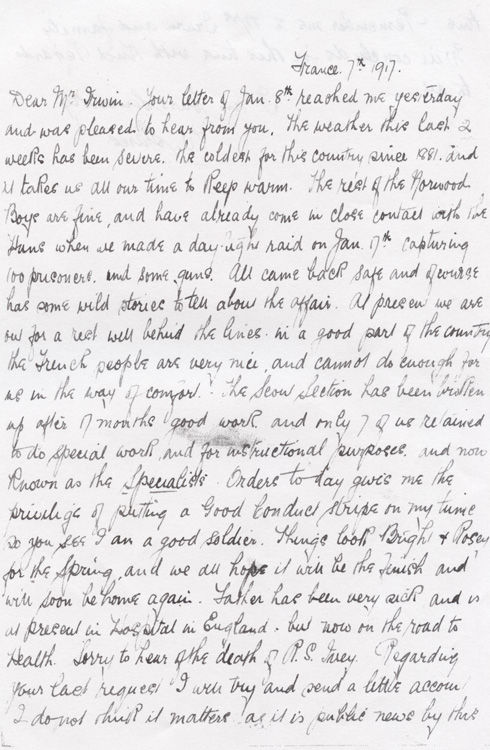 France. 7th 1917.
Dear Mr Irwin. Your letter of Jan. 8th reached me yesterday
and was pleased to hear from you. The weather this last 2
weeks has been severe. the coldest for this country since 1881. and
it takes us all our time to keep warm. The rest of the Norwood
Boys are fine, and have already come in close contact with the
Huns when we made a day-light raid on Jan. 17th capturing
100 prisoners. and some guns. All came back safe and of course
has some wild stories to tell about the affair. At present we are
out for a rest well behind the lines. in a good part of the country
the French people are very nice, and cannot do enough for
us in the way of comfort. The Scout Section has been broken
up after 7 months good work and only 7 of us retained
to do special work, and for instructional purposes. and now
known as the Specialists. Orders to day gives me the
privilege of putting a Good Conduct stripe on my tunic
so you see I am a good soldier. Things look Bright & Rosey
for the Spring, and we all hope it will be the finish and
will soon be home again. Father has been very sick and is
at present in Hospital in England. but now on the road to
Health. Sorry to hear of the death of R. S. Ivey. Regarding
your last request I will try and send a little account
I do not think it matters as it is public news by this